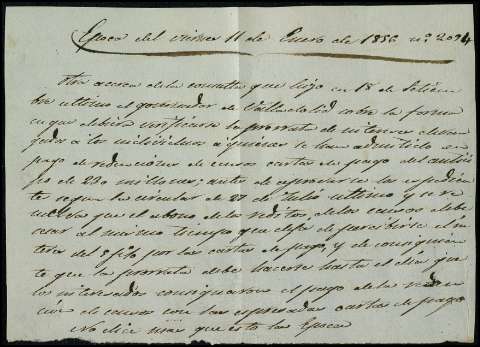 Epoca del viernes 11 de Enero de 1856 nº 2094
Era acerca de la consulta que hizo en 18 de Setiem
bre ultimo el gobernador de Valladolid sobre la forma
en que debiera verificarse la prorrata de intereses deven
gados a los individuos a quienes se han admitido en
pago de redenciones de censos cartas de pago del antici
po de 230 millones; antes de aprobarse los espedien
tes segun la circular de 28 de Julio ultimo y se re
suelve que el abono de los reditos de los censos debe
cesar al mismo tiempo que deja de percibirse el in
teres del 5 p% por las cartas de pago, y de consiguien
te que la prorrata debe hacerse hasta el dia que
los interesados consiguieron el pago de la reden
cion de censos con las espresadas cartas de pago
No dice mas que esto la Epoca